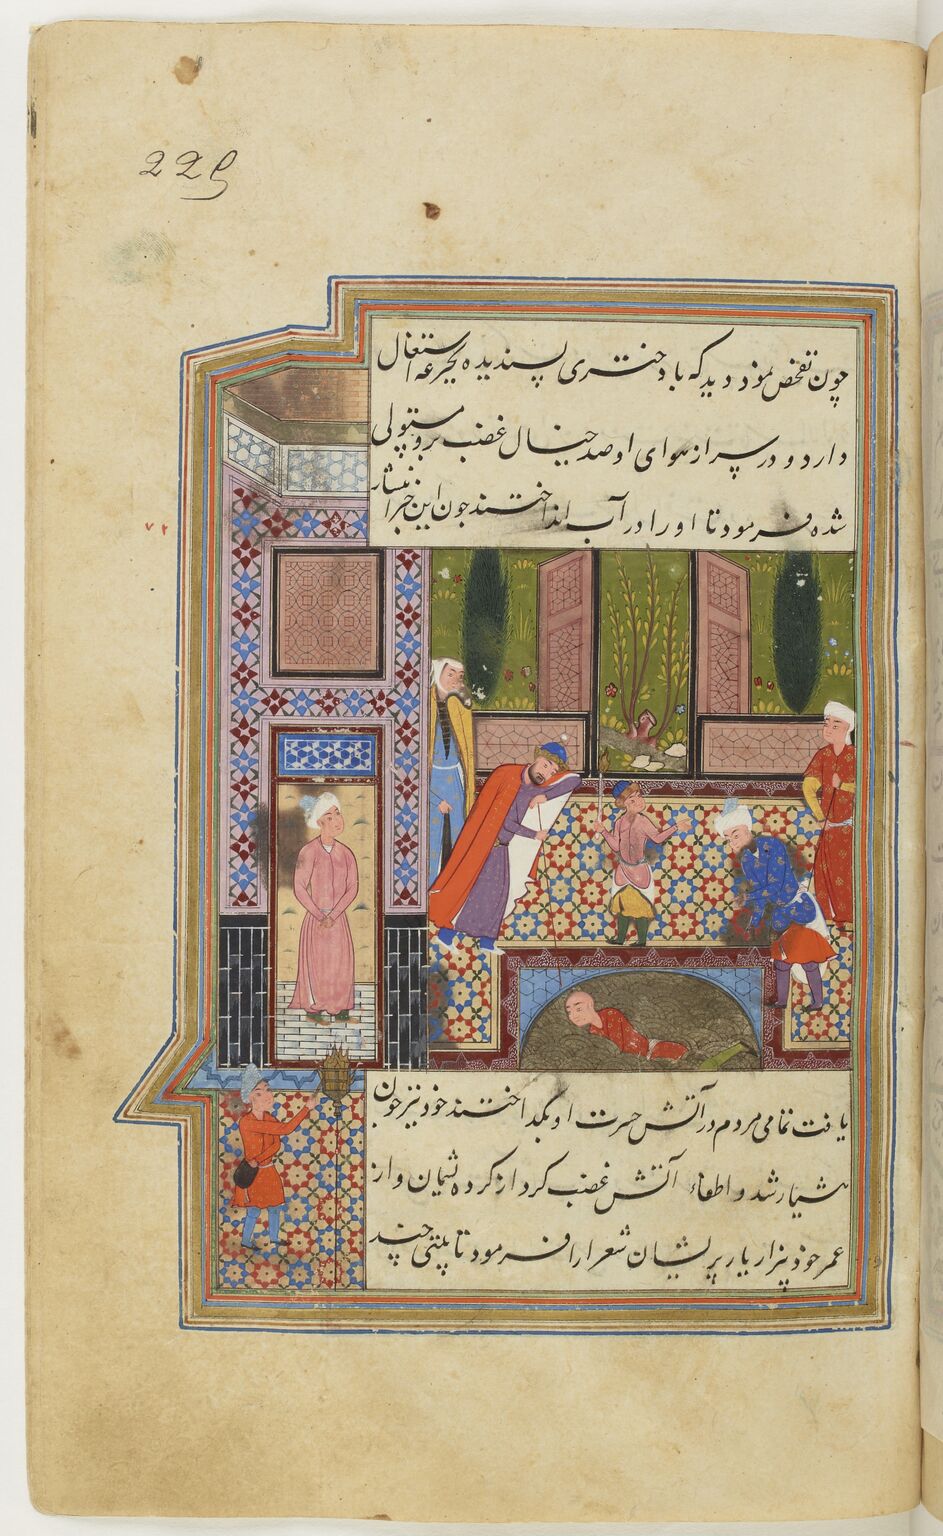 225
چون تفحص نمود دید که با دختری پسندیده بجرعه اشتغال
دارد و در سر از هوای او صد خیال غضب برو مستولی
شده فرمود تا او را در آب انداختند چون این خبر انتشار
۷۲
یافت تمامی مردم در آتش حسرت او بگداختند خود نیز چون
هشیار شد و اطفاء آتش غضب کرد از کرده پشیمان و از
عمر خود بیزار یار پریشان شعرا را فرمود تا بیتی چند